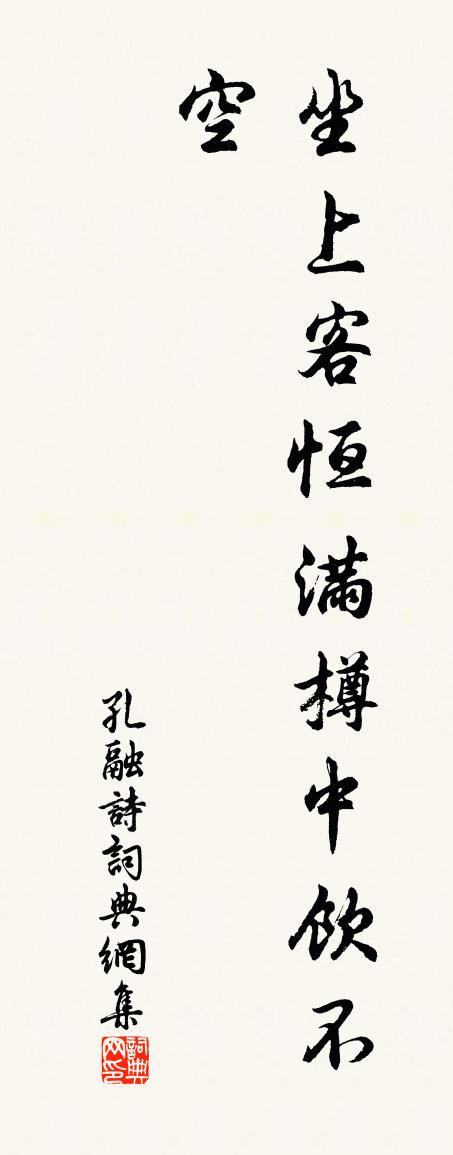 坐上客恒滿樽中飲不
空
孔融詩詞典網集
詞典网印